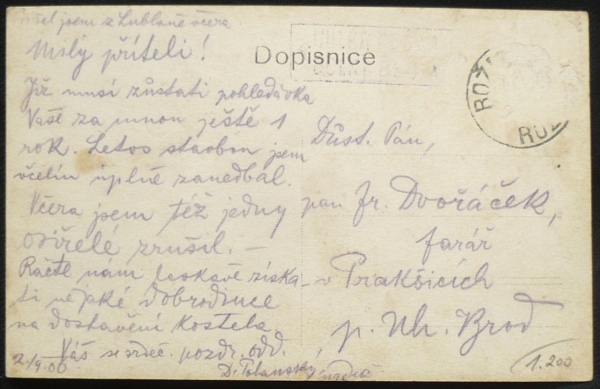 jsem z Lublaně včera
Milý příteli!
Již musí zůstati pohledávka
Vaše za mnou ještě 1
rok. Letos stavbou jsem
včelín úplně zanedbal.
Včera jsem též jedny
osiřelé zrušil. —
Račte nám laskavě získa-
ti nějaké dobrodince
na dostavění kostela
Vás srdeč. pozdr. odd.
2/9.00
Dopisnice
ROŽ
ROŽ
Důst. Pán,
pan Fr. Dvořáček,
farář
v Prakšicích
p. Uh. Brod
1.200